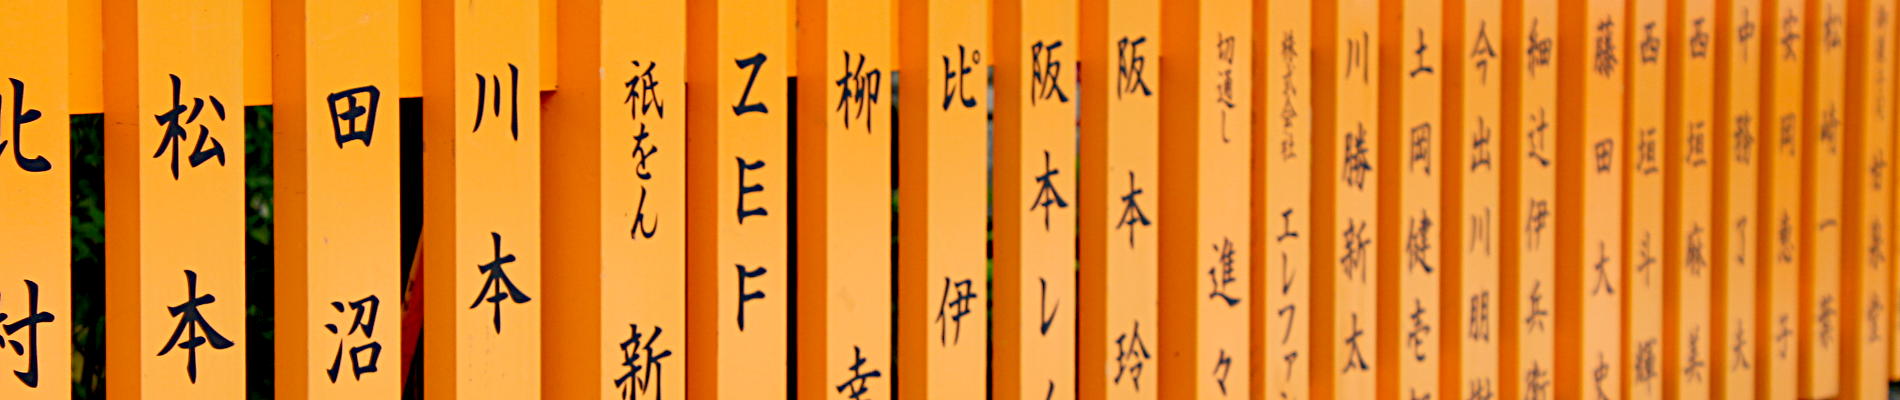 北村
松本
田沼
川本
祇をん 新
ZEF
柳 幸
比゜伊
阪本レ
阪本玲
切通し 進々
株式会社 エレファン
川勝新太
土岡健壱
今出川朋樹
細辻伊兵衛
藤田大史
西垣斗輝
西垣麻美
中務了夫
安岡恵子
松崎一葉